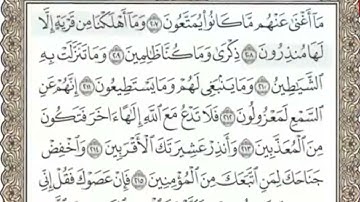 مَا أَغْنَىٰ عَنْهُم مَّا كَانُوا يُمَتَّعُونَ ٢٠٧ وَمَا أَهْلَكْنَا مِن قَرْيَةٍ إِلَّا
لَهَا مُنذِرُونَ ٢٠٨ ذِكْرَىٰ وَمَا كُنَّا ظَالِمِينَ ٢٠٩ وَمَا تَنَزَّلَتْ بِهِ
الشَّيَاطِينُ ٢١٠ وَمَا يَنبَغِي لَهُمْ وَمَا يَسْتَطِيعُونَ ٢١١ إِنَّهُمْ عَنِ
السَّمْعِ لَمَعْزُولُونَ ٢١٢ فَلَا تَدْعُ مَعَ اللَّهِ إِلَٰهًا آخَرَ فَتَكُونَ
مِنَ الْمُعَذَّبِينَ ٢١٣ وَأَنذِرْ عَشِيرَتَكَ الْأَقْرَبِينَ ٢١٤ وَاخْفِضْ
جَنَاحَكَ لِمَنِ اتَّبَعَكَ مِنَ الْمُؤْمِنِينَ ٢١٥ فَإِنْ عَصَوْكَ فَقُلْ إِنِّي